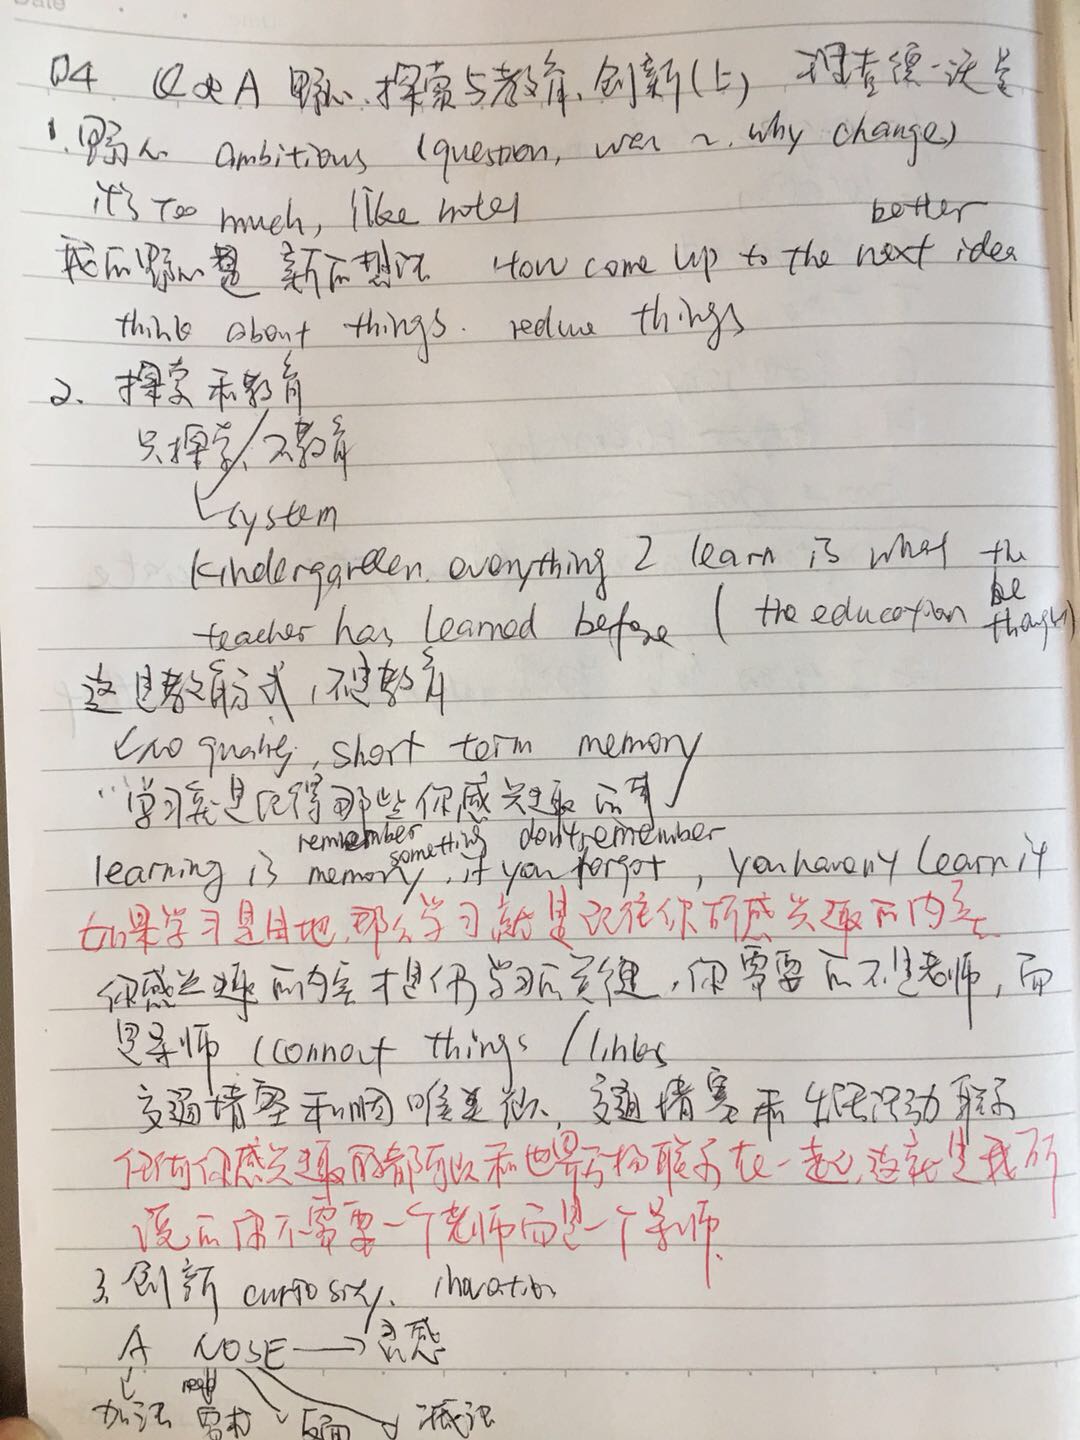 Date
04 Q&A 野心、探索与教育、创新(上) 理查德·沃曼
1.野心 ambitious (question, ~. why change)
it's too much, like
better
我的野心是 新的想法 How come up to the next idea
think about things. reduce things
2. 探索和教育
只探索/不教育
system
kindergarden. everything I learn is what the
be
teacher has learned before ( the education
这是教育方式,不是教育
no , short term memory
"学习就是记得那些你感兴趣的事
remember something dont remember
learning is memory, if you forgot, you haven't learn it
如果学习是目地,那么学习就是记住你所感兴趣的内容
你感兴趣的内容才是你学习的关键,你需要的不是老师,而
是导师 (connect things / links
交通堵塞和、交通堵塞和 联系
任何你感兴趣的都可以和世界万物联系在一起,这就是我所
说的你不需要一个老师而是一个导师.
3.创新 curiosity. inovation
A NOSE → 灵感
need
加法 需求 反面 减法